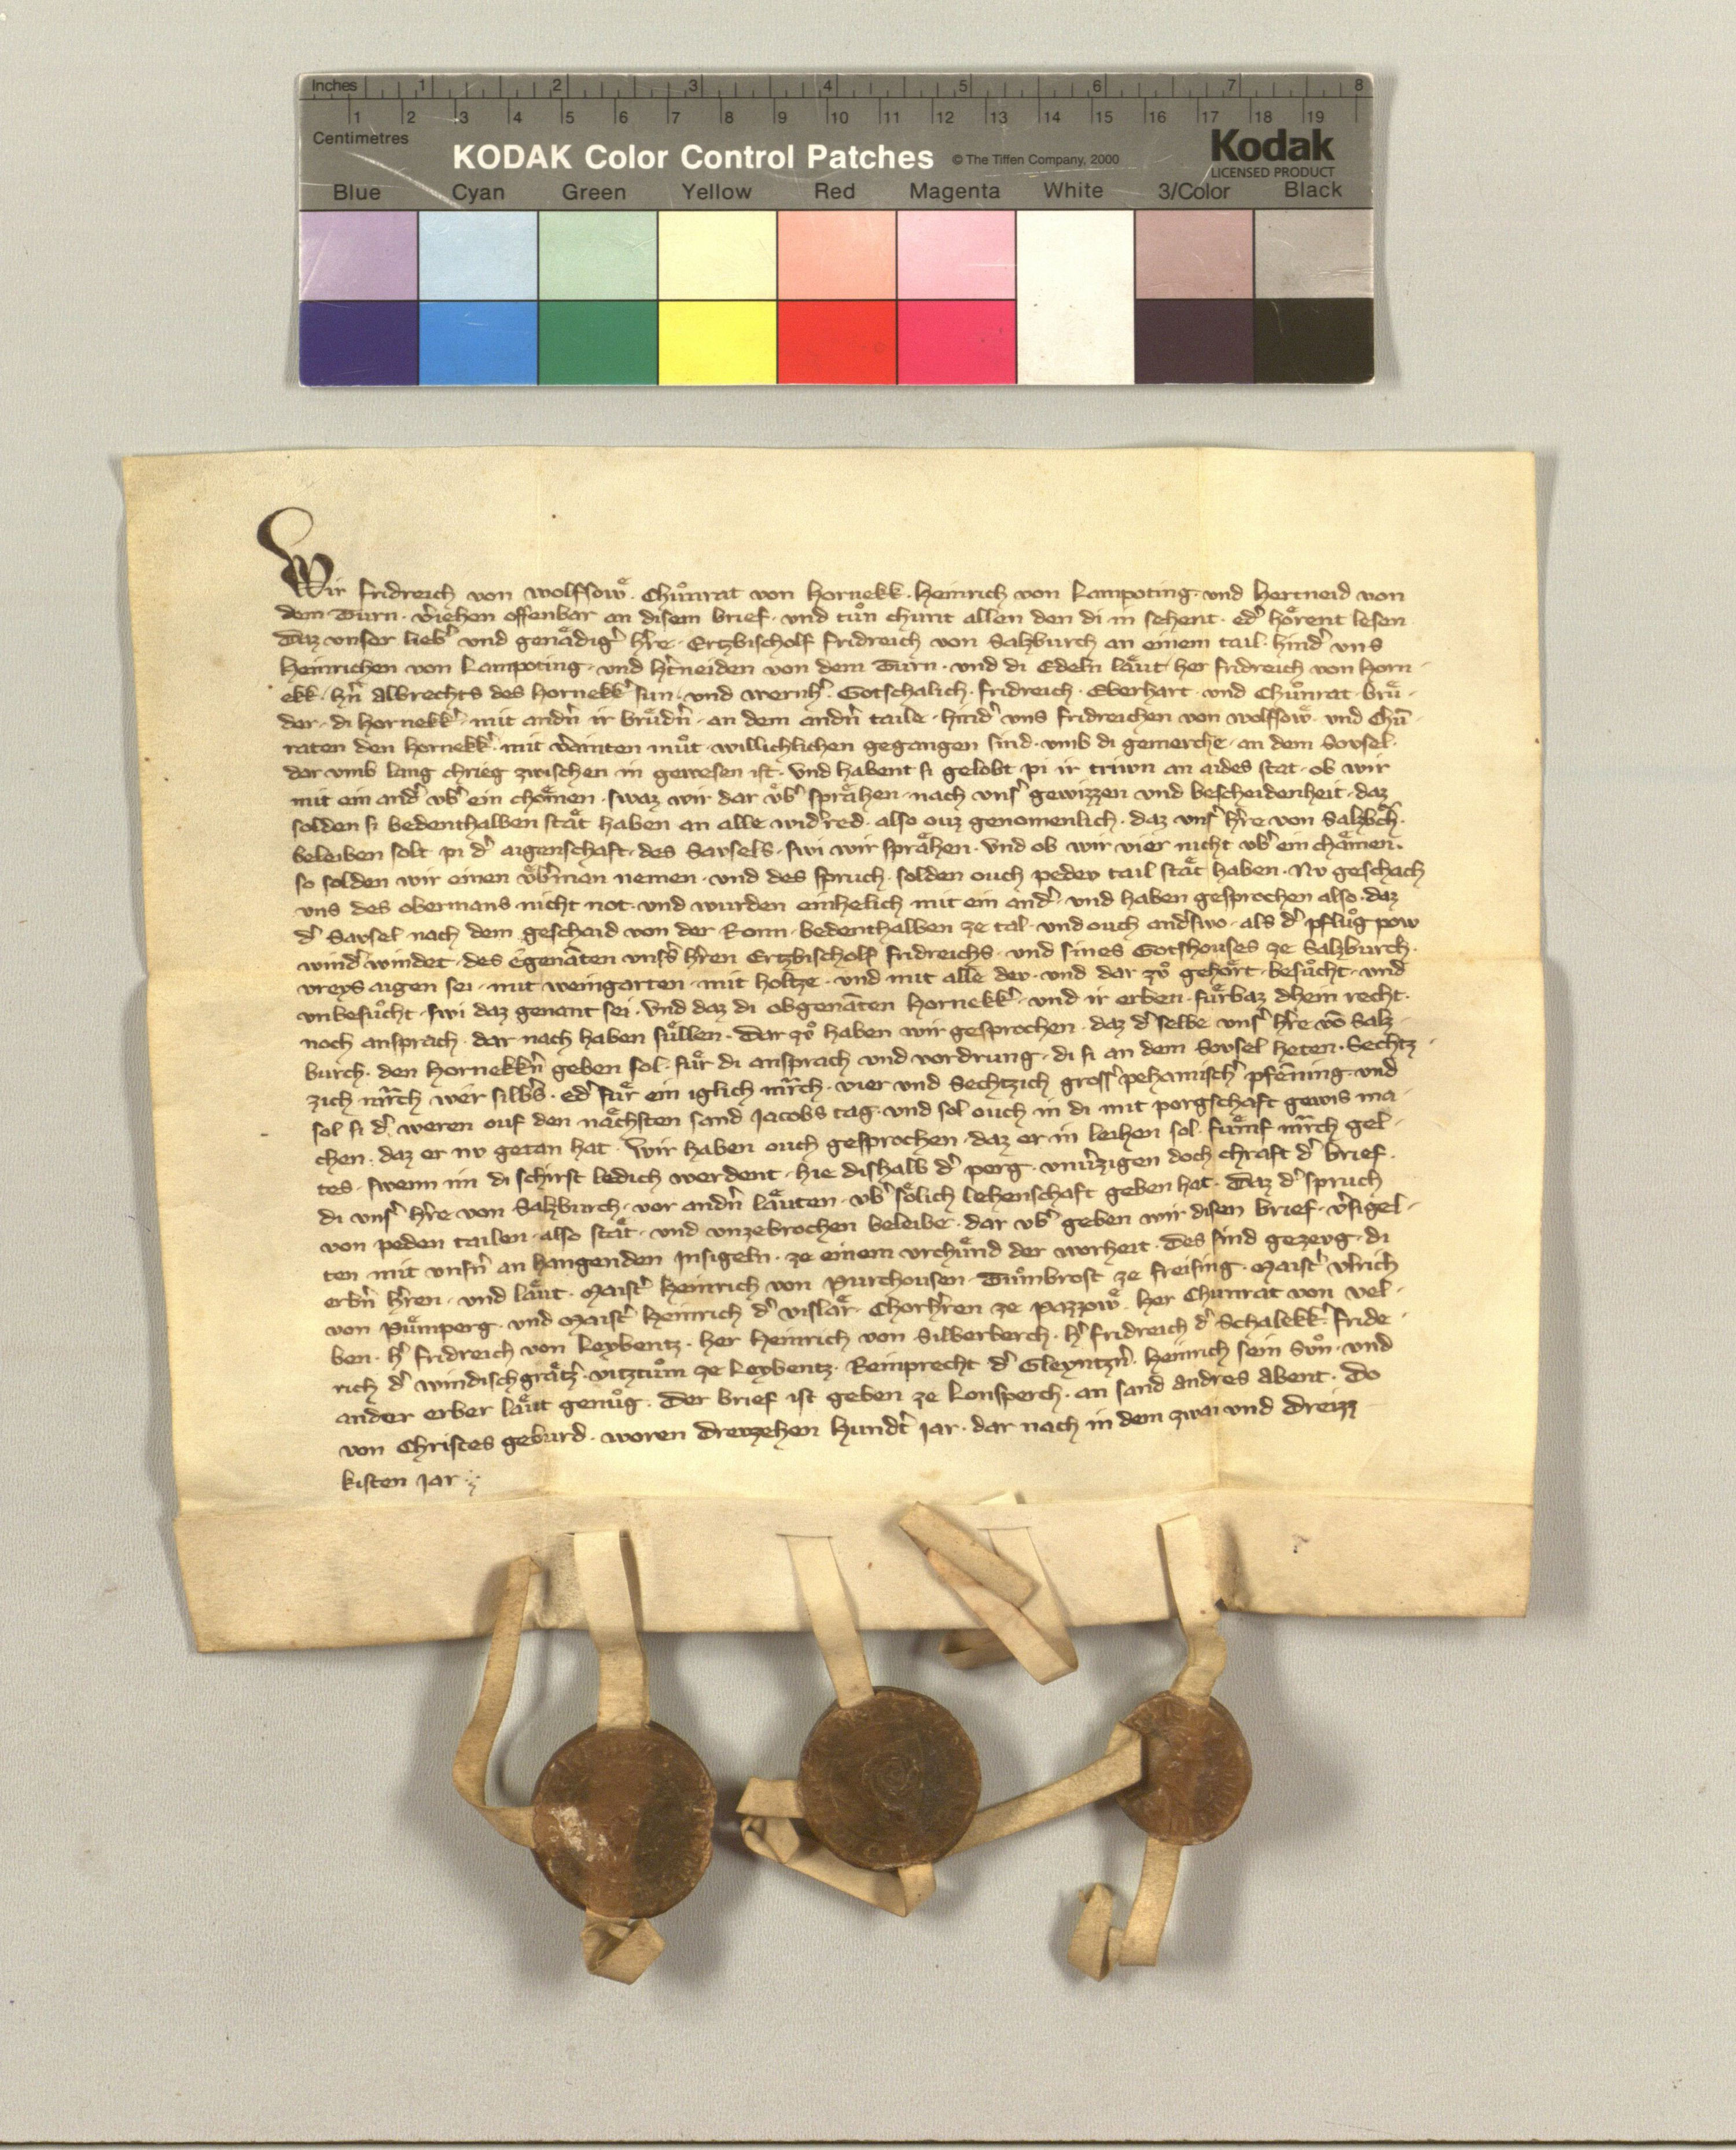 Inches 1 2 3 4 5 6 7 8
1 2 3 4 5 6 7 8 9 10 11 12 13 14 15 16 17 18 19
Centimetres
KODAK Color Control Patches © The Tiffen Company, 2000 Kodak
LICENSED PRODUCT
Blue Cyan Green Yellow Red Magenta White 3/Color Black
Wir Fridreich von Wolfsowͤ. Chuͦnrat von Hornekk. Heinrich von Lampoting. und Hertneid von
dem Turn. v̓iehen offenbar an disem brief. und tuͦn chunt allen den di in sehent. ed̓ hoͤrent lesen
Daz unser lieb̓ und genaͤdig̓ h̓re. Ertzbischolf Fridreich von Salzburch an einem tail. hind̓ uns
Heinrichen von Lampoting. und H̓tneiden von dem Turn. und di Edeln laͤut her Fridreich von Horn
ekk. h̓n Albrechts des Hornekk̓ sun. und Wernh̓. Gotschalich. Fridreich. Eberhart. und Chuͦnrat. bruͤ
der. di Hornekk̓. mit andn̓ ir bruͤdn̓. an dem andn̓ taile. hind̓ uns Fridreichen von Wolfsowͤ. und Chuͦ
raten den Hornekk̓. mit v̓ainten muͦt. willichlichen gegangen sind. umb di gemerche. an dem Sousel.
dar umb lang chrieg zwischen in gewesen ist. Und habent si gelobt pi ir triwn an aides stat. ob wir
mit ein and̓ ub̓ ein choͤmen. swaz wir dar uͤb̓ spraͤhen. nach uns̓ gewizzen und bescheidenheit. daz
solden si bedenthalben staͤt haben an alle wid̓red. also ouz genomenlich. daz uns̓ h̓re von Salzb̓ch.
beleiben solt pi d̓ aigenschaft. des Sausels. swi wir spraͤhen. Und ob wir vier nicht ub̓ ein chaͤmen.
so solden wir einen uͤb̓man nemen. und des spruch. solden ouch pedev tail staͤt haben. Nv geschach
uns des obermans nicht not. und wurden einhelich mit ein and̓. und haben gesprochen also. daz
d̓ Sausel. nach dem geschaid von der Ronn. bedenthalben ze tal. und ouch and̓swo. als d̓ pfluͦg pow
wind̓ windet. des egenāten uns̓s h̓ren Ertzbischolf Fridreichs. und sines Gotshouses ze Salzburch.
vreys aigen sei. mit weingarten. mit holtze. und mit alle dev. und dar zuͦ gehoͤrt. besuͦcht. und
unbesuͦcht. swi daz genant sei. Und daz di obgenāten Hornekk̓. und ir erben. fuͤrbaz dhein recht.
noch ansprach. dar nach haben suͤllen. Dar zuͦ haben wir gesprochen. daz d̓ selbe uns̓ h̓re vō Salz
burch. den Hornekkn̓ geben sol. fuͤr di ansprach und vordrung. di si an dem Sousel heten. Sechtz
zich m̓rch wer silb̓s. ed̓ fuͤr ein iglich m̓rch. vier und Sechtzich gross̓ pehamisch̓ pfēning. und
sol si d̓ weren ouf den naͤchsten sand Jacobs tag. und sol ouch in di mit porgschaft gewis ma
chen. daz er nv getan hat. Wir haben ouch gesprochen. daz er in leihen sol. fuͤmf m̓rch gel
tes. swenn im di schirst ledich werdent. hie dishalb d̓ perg. unv̓zigen doch chraft d̓ brief.
di uns̓ h̓re von Salzburch. vor andn̓ laͤuten. ub̓ soͤlich lehenschaft geben hat. Daz d̓ spruch
von peden tailen. also staͤt. und unzebrochen beleibe. dar ub̓ geben wir disen brief. v̓sigel
ten mit unsn̓ an hangenden Insigeln. ze einem urchuͤnd der worheit. Des sind gezevg. di
erbn̓ h̓ren. und laͤut. Maist̓ Heinrich von Purchousen. Tuͦmbrost ze Freising. Maist̓ Ulrich
von Puͤmperg. und Maist̓ Heinrich d̓ vislaͤr. Chorh̓ren ze Pazzowͤ. Her Chunrat von Vel
ben. h̓ Fridreich von Leybentz. Her Heinrich von Silberberch. h̓ Fridreich d̓ Schalekk̓. Fride
rich d̓ Windischgraͤtz̓. vitztuͦm ze Leybentz. Reinprecht d̓ Gleyntzn̓. Heinrich sein Suͦn. und
ander erber laͤut genuͦg. Der brief ist geben ze Lonsperch. an sand Andres abent. Do
von Christes geburd. woren Drevzehen Hund̓t jar. dar nach in dem zwai und Dreizz
kisten jar